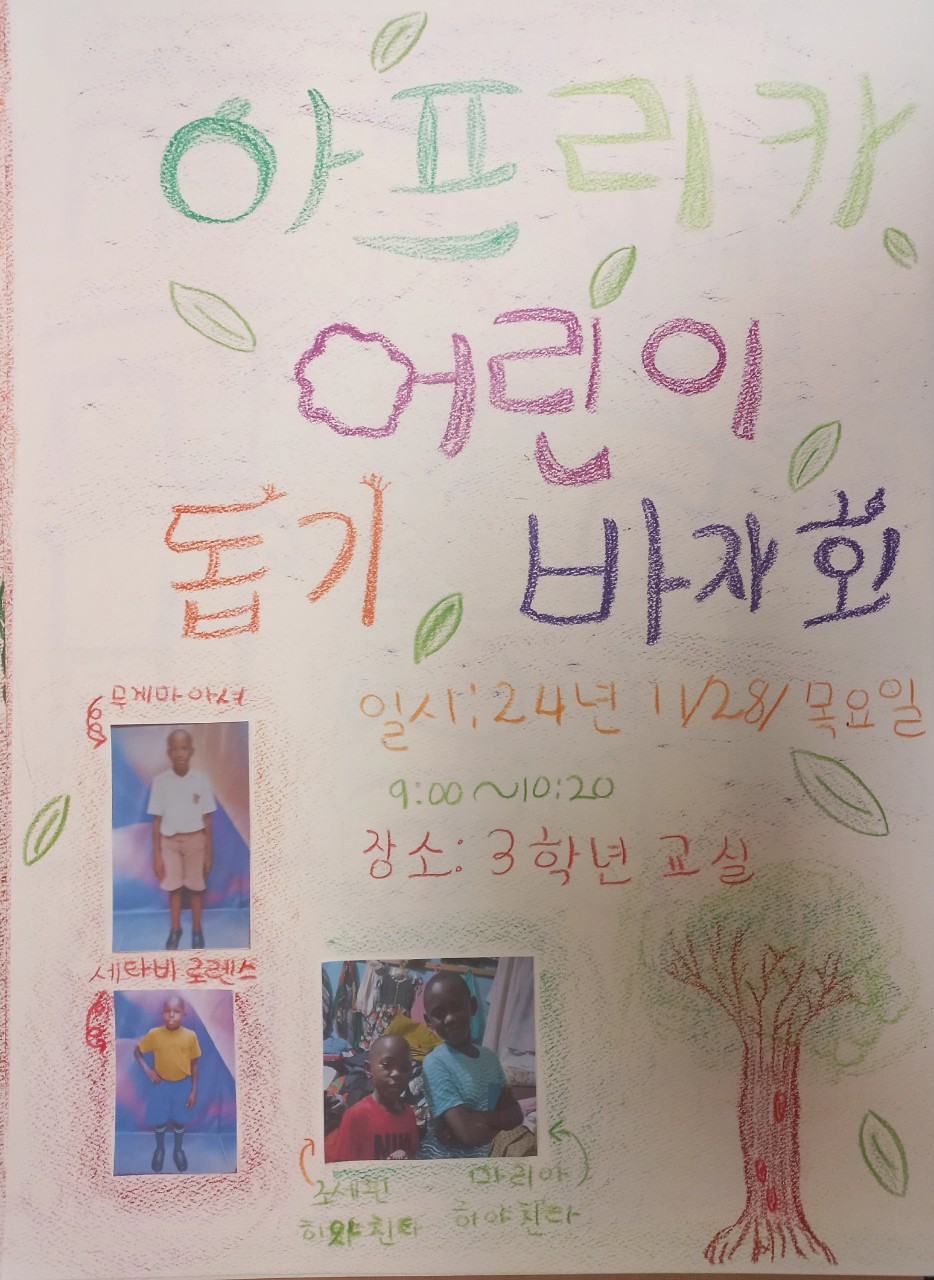 아프리카
어린이
돕기 바자회
일시:24년 11/28/목요일
9:00~10:20
장소: 3학년 교실
무게마 아셔
세타비 로렌스
조세핀
히야친타
마리아
하야친타